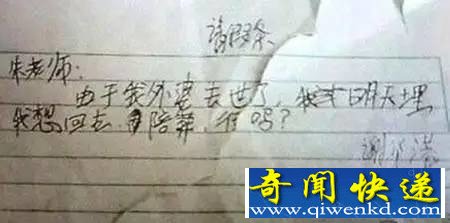 请假条
朱老师:
由于我外婆去世了,我 明天埋
我想回去 陪葬,行吗?
谢
奇闻快递
www.qiwenkd.com